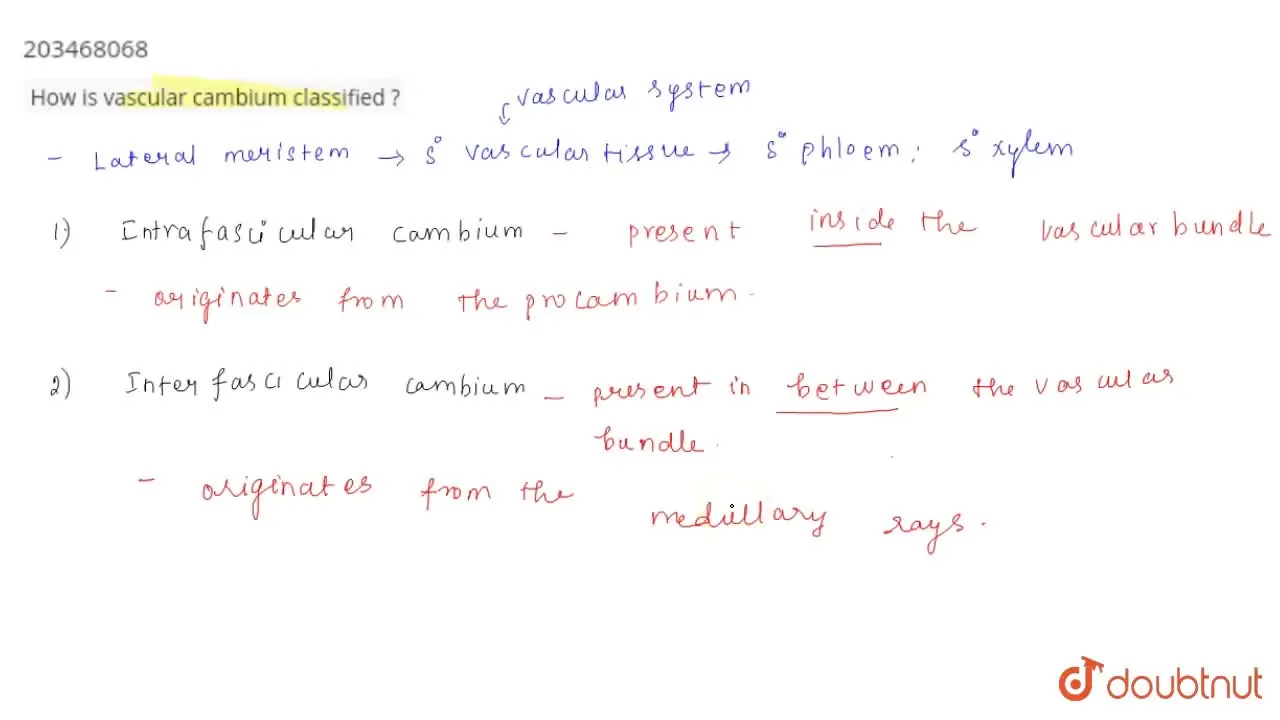 203468068
How is vascular cambium classified ?
vascular system
- Lateral meristem → s° vascular tissue → s° phloem, s° xylem
1) Intrafascicular cambium - present inside the vascular bundle
- originates from the procambium.
2) Interfascicular cambium - present in between the vascular
bundle.
- originates from the
medullary rays.
doubtnut